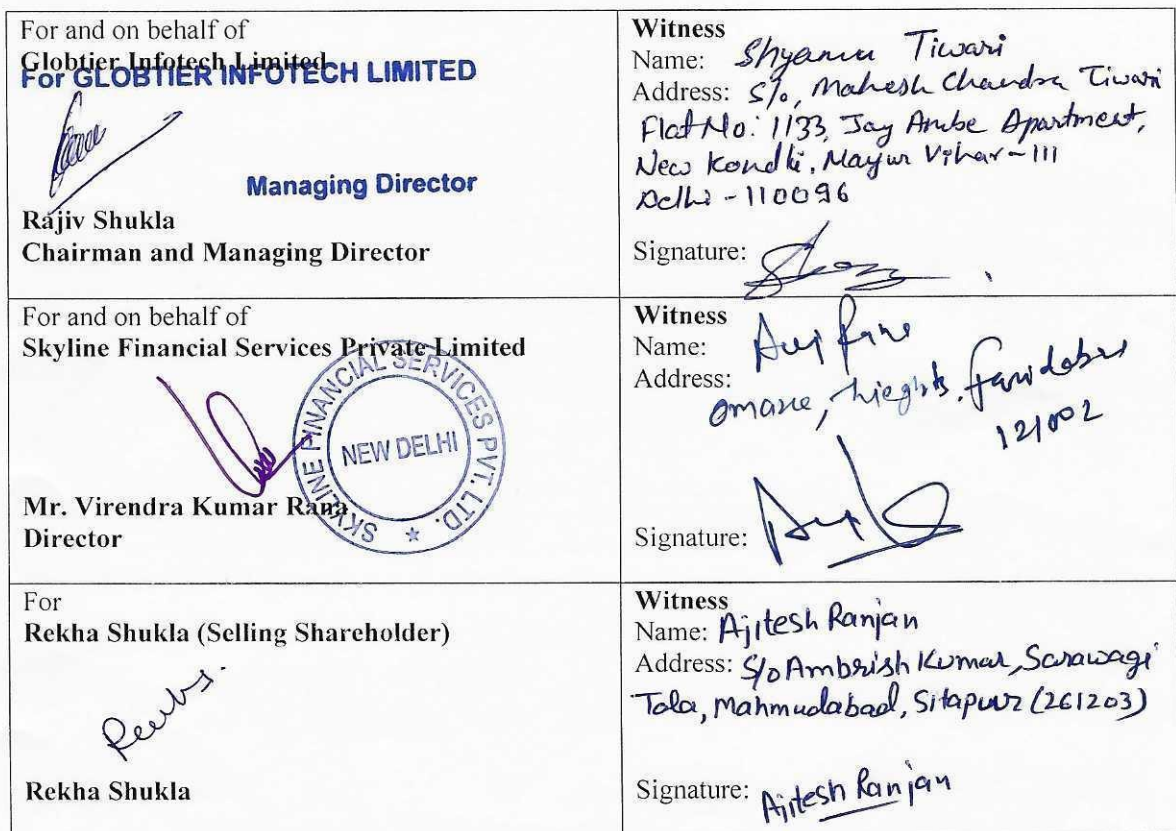 For and on behalf of
Globtier Infotech Limited
For GLOBTIER INFOTECH LIMITED
Managing Director
Rajiv Shukla
Chairman and Managing Director
Witness
Name: Shyamu Tiwari
Address: S/o, Mahesh Chandra Tiwari
Flat No: 1133, Jay Ambe Apartment,
New Kondli, Mayur Vihar-III
Delhi - 110096
Signature:
For and on behalf of
Skyline Financial Services Private Limited
SKYLINE FINANCIAL SERVICES PVT. LTD. *
NEW DELHI
Mr. Virendra Kumar Rana
Director
Witness
Name: Anuj Rana
Address:
omaxe, hieghts, faridabad
121002
Signature:
For
Rekha Shukla (Selling Shareholder)
Rekha Shukla
Witness
Name: Ajitesh Ranjan
Address: S/o Ambrish Kumar, Sarawagi
Tola, Mahmudabad, Sitapur (261203)
Signature: Ajitesh Ranjan